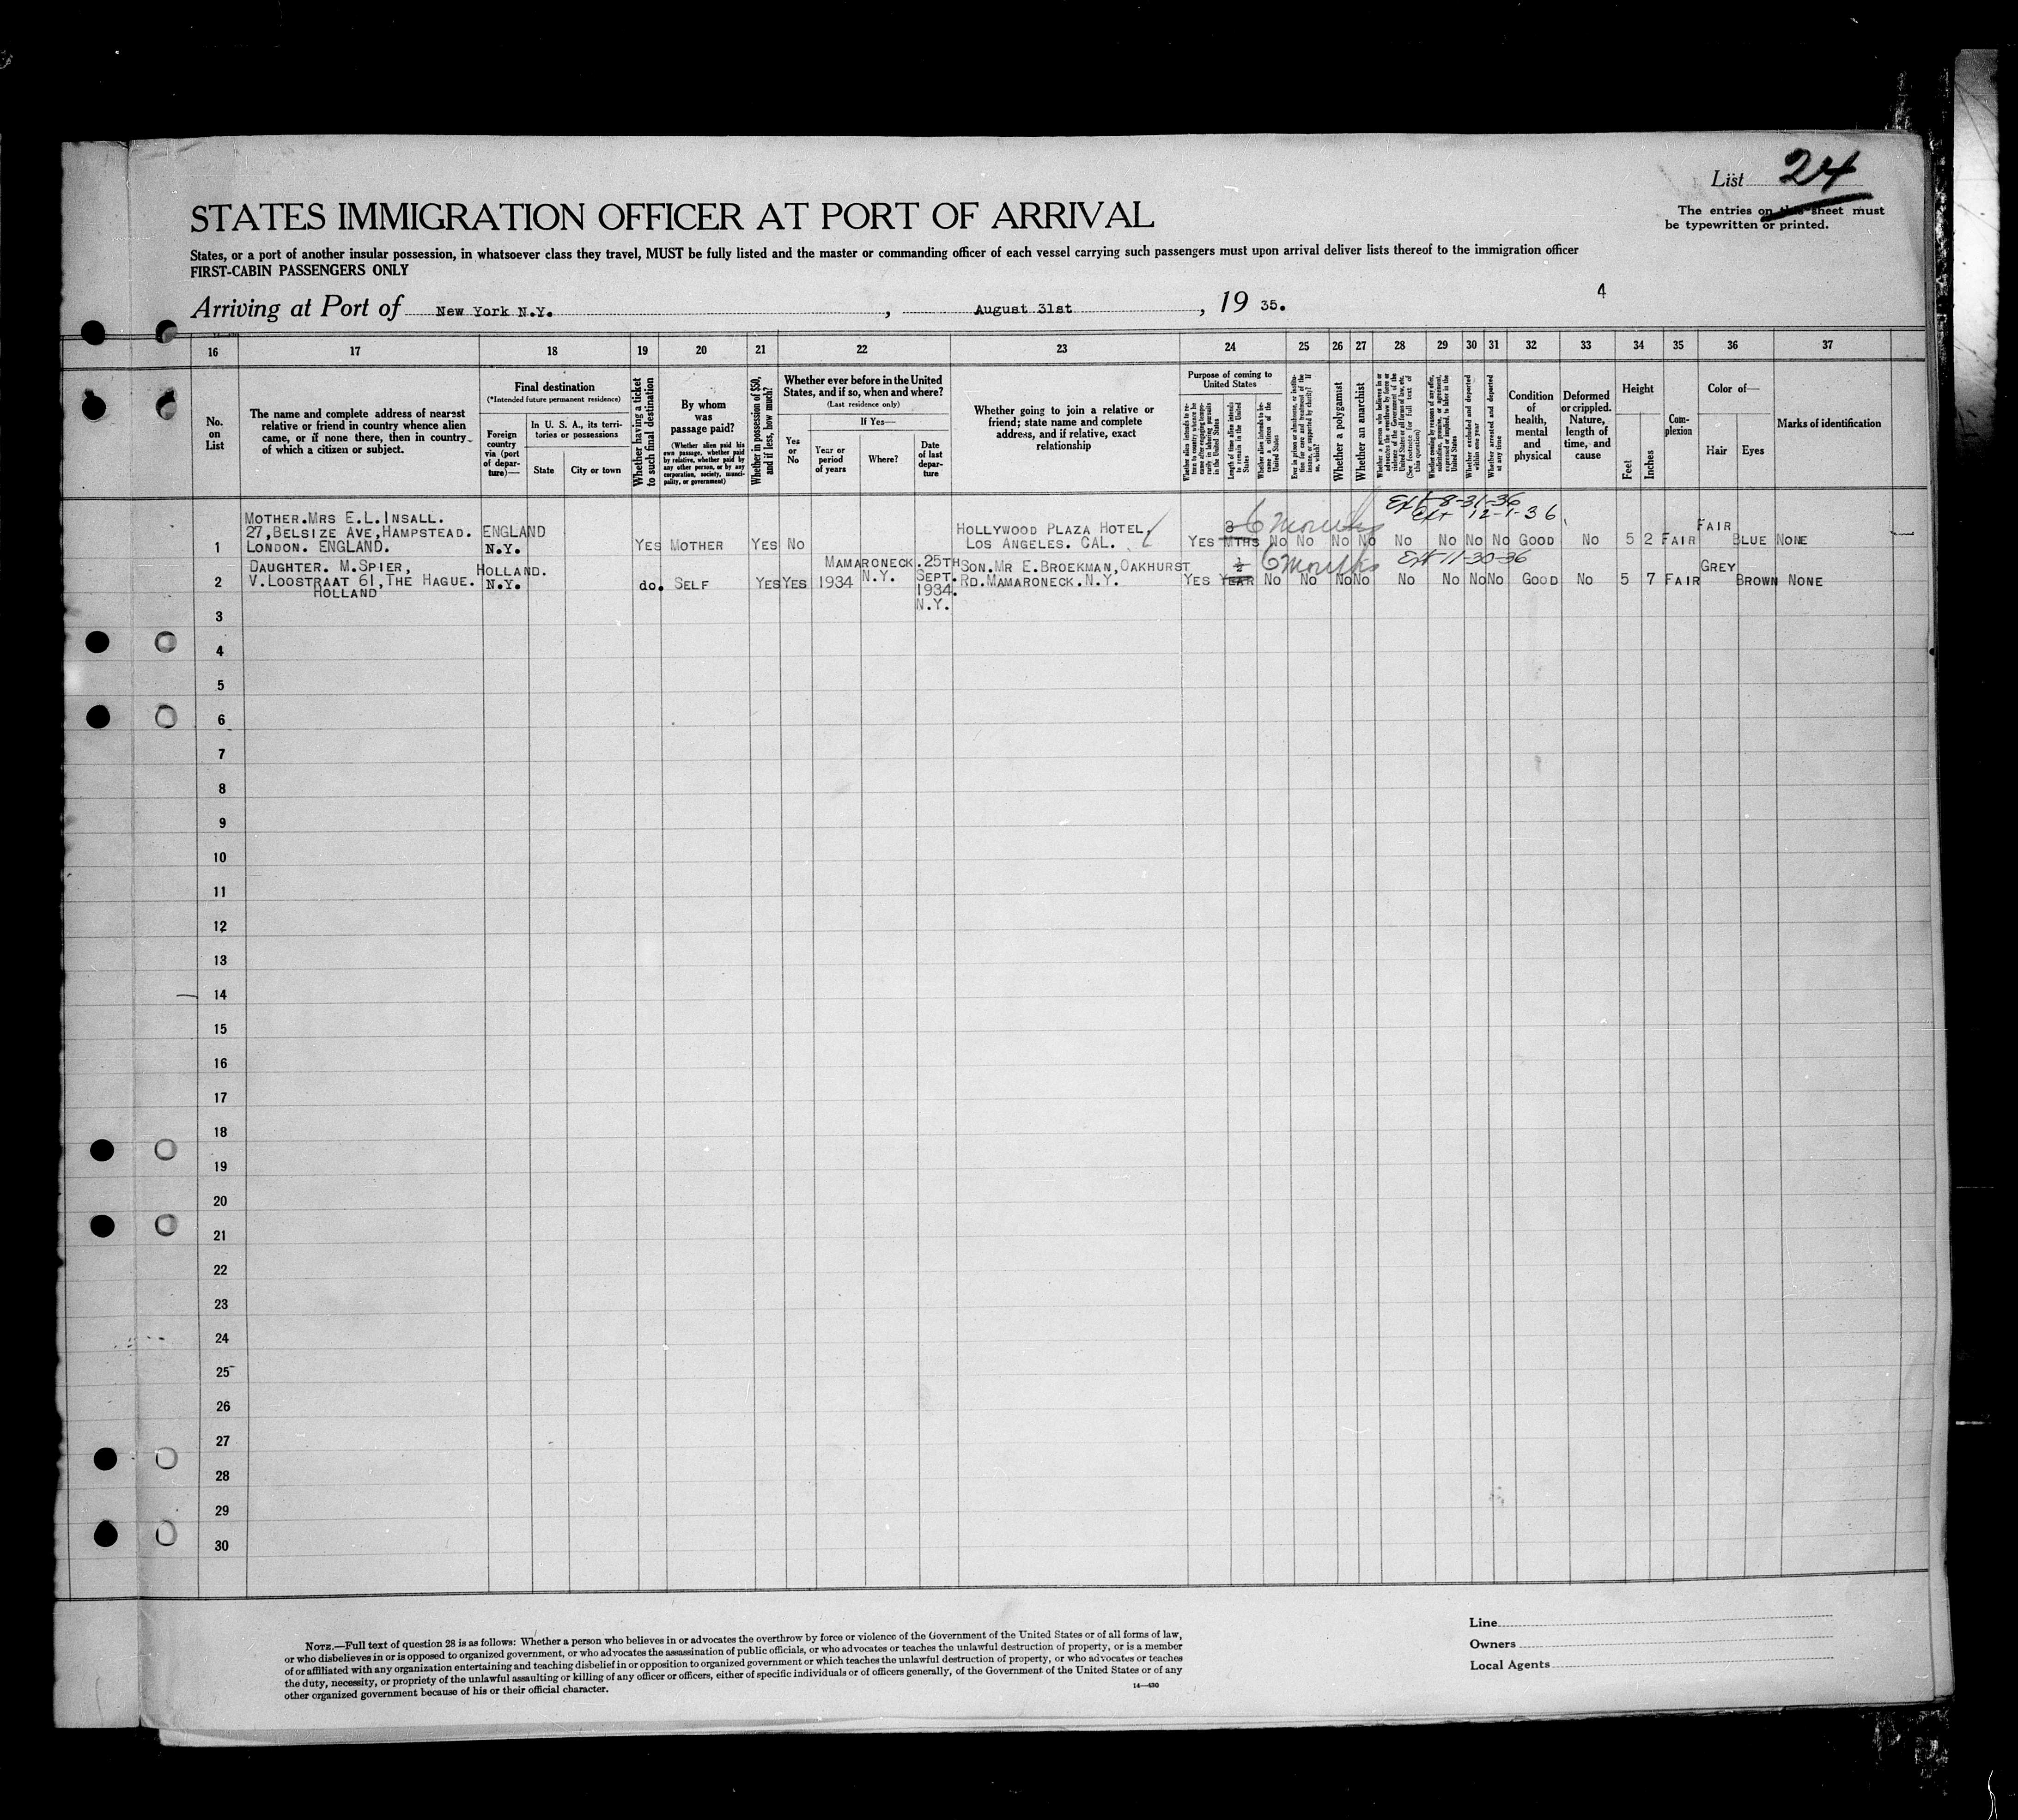 List 24
The entries on this sheet must
be typewritten or printed.
STATES IMMIGRATION OFFICER AT PORT OF ARRIVAL
States, or a port of another insular possession, in whatsoever class they travel, MUST be fully listed and the master or commanding officer of each vessel carrying such passengers must upon arrival deliver lists thereof to the immigration officer
FIRST-CABIN PASSENGERS ONLY
4
Arriving at Port of New York N.Y., August 31st, 19 35.
16 17 18 19 20 21 22 23 24 25 26 27 28 29 30 31 32 33 34 35 36 37
No.
on
List
The name and complete address of nearest
relative or friend in country whence alien
came, or if none there, then in country
of which a citizen or subject.
Final destination
(*Intended future permanent residence)
Foreign
country
via (port
of depar-
ture)—
In U. S. A., its terri-
tories or possessions
State
City or town
Whether having a ticket
to such final destination
By whom
was
passage paid?
(Whether alien paid his
own passage, whether paid
by relative, whether paid by
any other person, or by any
corporation, society, munici-
pality, or government)
Whether in possession of $50,
and if less, how much?
Whether ever before in the United
States, and if so, when and where?
(Last residence only)
Yes
or
No
If Yes—
Year or
period
of years
Where?
Date
of last
depar-
ture
Whether going to join a relative or
friend; state name and complete
address, and if relative, exact
relationship
Purpose of coming to
United States
Whether alien intends to re-
turn to country whence he
came after engaging tempo-
rarily in laboring pursuits
in the United States
Length of time alien intends
to remain in the United
States
Whether alien intends to be-
come a citizen of the
United States
Ever in prison or almshouse, or institu-
tion for care and treatment of the
insane, or supported by charity? If
so, which?
Whether a polygamist
Whether an anarchist
Whether a person who believes in or
advocates the overthrow by force or
violence of the Government of the
United States or all forms of law, etc.
(See footnote for full text of
this question)
Whether coming by reasons of any offer,
solicitation, promise, or agreement,
expressed or implied, to labor in the
United States
Whether excluded and deported
within one year
Whether arrested and deported
at any time
Condition
of
health,
mental
and
physical
Deformed
or crippled.
Nature,
length of
time, and
cause
Height
Feet
Inches
Com-
plexion
Color of—
Hair
Eyes
Marks of identification
Ext 8-31-36
Ext 12-1-36
MOTHER.MRS E.L.INSALL.
27,BELSIZE AVE,HAMPSTEAD. ENGLAND HOLLYWOOD PLAZA HOTEL, 3 6 months FAIR
1 LONDON. ENGLAND. N.Y. YES MOTHER YES NO LOS ANGELES. CAL. YES MTHS NO NO NO NO NO NO NO NO GOOD NO 5 2 FAIR BLUE NONE
DAUGHTER. M.SPIER, HOLLAND. MAMARONECK. 25TH SON.MR E.BROEKMAN,OAKHURST ½ 6 months Ext 11-30-36 GREY
2 V.LOOSTRAAT 61,THE HAGUE. N.Y. do. SELF YES YES 1934 N.Y. SEPT. RD.MAMARONECK.N.Y. YES YEAR NO NO NO NO NO NO NO NO GOOD NO 5 7 FAIR BROWN NONE
HOLLAND 1934.
N.Y.
3
4
5
6
7
8
9
10
11
12
13
14
15
16
17
18
19
20
21
22
23
24
25
26
27
28
29
30
NOTE.—Full text of question 28 is as follows: Whether a person who believes in or advocates the overthrow by force or violence of the Government of the United States or of all forms of law,
or who disbelieves in or is opposed to organized government, or who advocates the assassination of public officials, or who advocates or teaches the unlawful destruction of property, or is a member
of or affiliated with any organization entertaining and teaching disbelief in or opposition to organized government or which teaches the unlawful destruction of property, or who advocates or teaches
the duty, necessity, or propriety of the unlawful assaulting or killing of any officer or officers, either of specific individuals or of officers generally, of the Government of the United States or of any
other organized government because of his or their official character.
14—430
Line
Owners
Local Agents